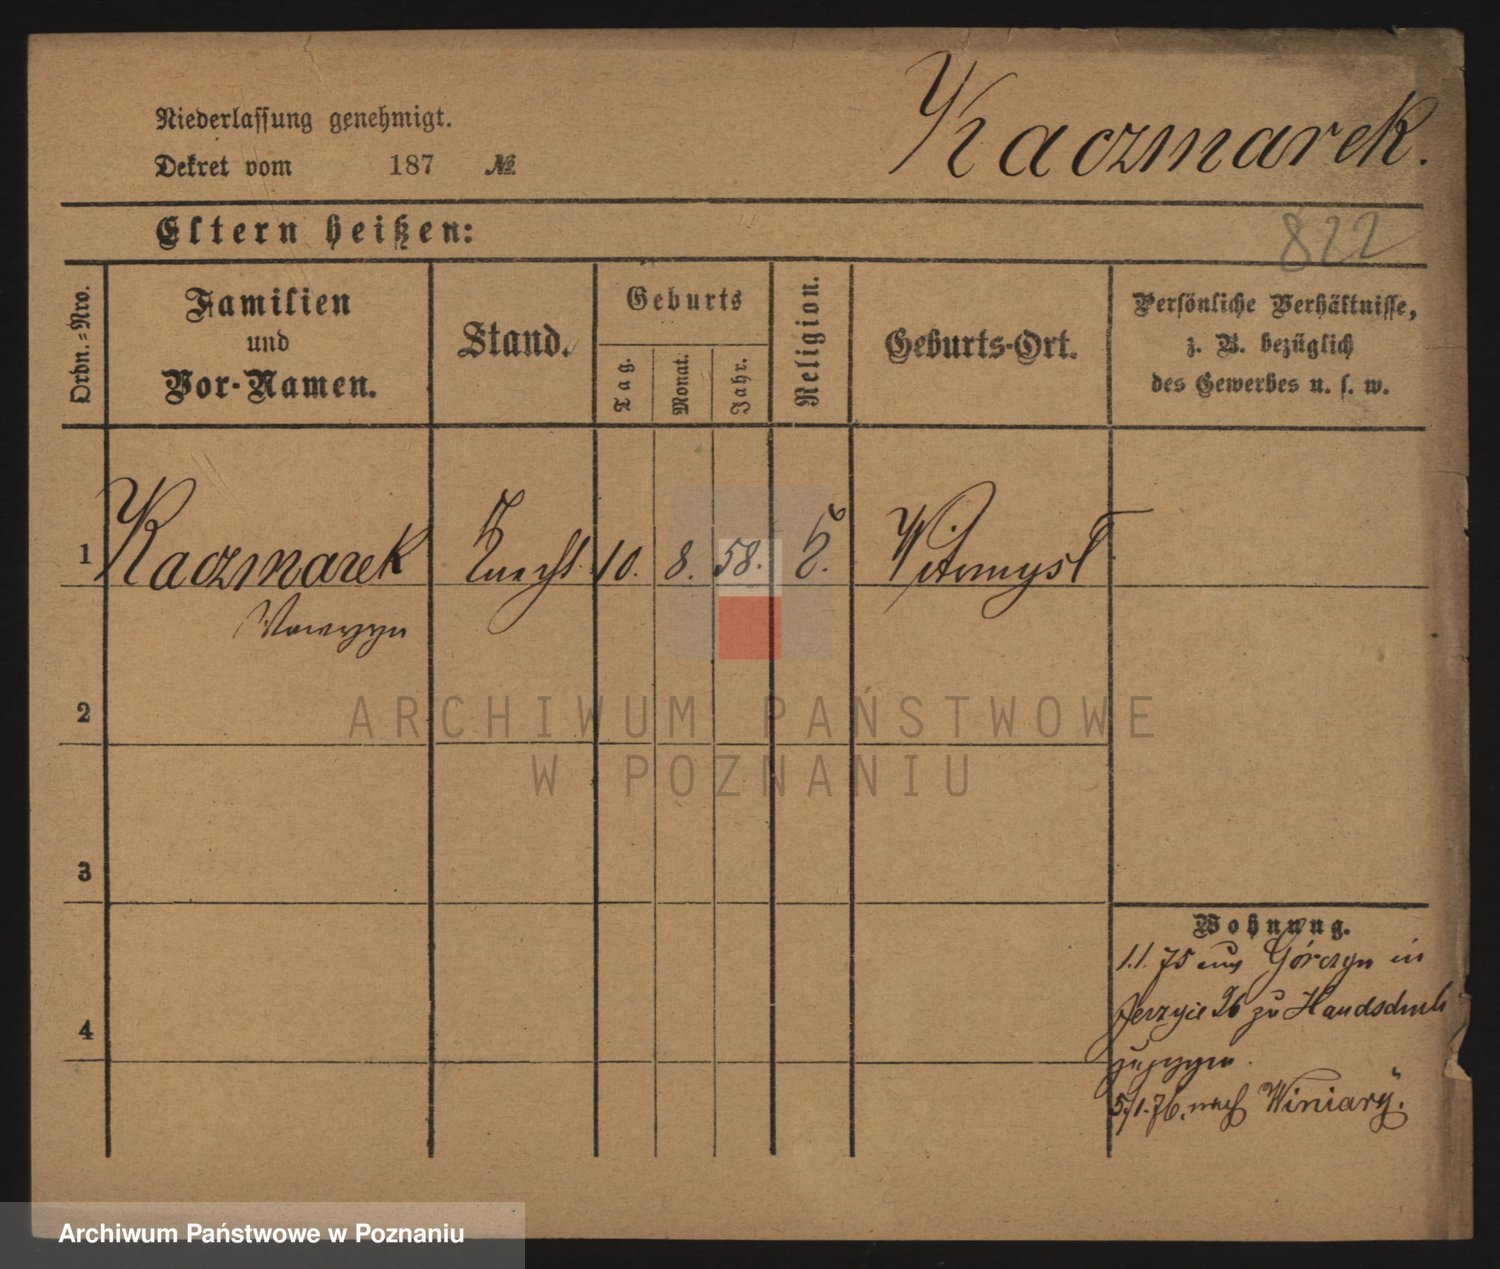 Niederlassung genehmigt.
Dekret vom 187 №
Kaczmarek.
Eltern heißen:
822
Ordn.-Nro.
Familien
und
Vor-Namen.
Stand.
Geburts
Tag.
Monat.
Jahr.
Religion.
Geburts-Ort.
Persönliche Verhältnisse,
z. B. bezüglich
des Gewerbes u. s. w.
1 Kaczmarek Knecht 10. 8. 58. k. Witomysl
Wawrzyn
2
3
4
Wohnung.
1.1.75 aus Górczyn in
Jerzyce 26 zu Handschuh
zugezogen.
5/1.76. nach Winiary.
ARCHIWUM PAŃSTWOWE
W POZNANIU
Archiwum Państwowe w Poznaniu